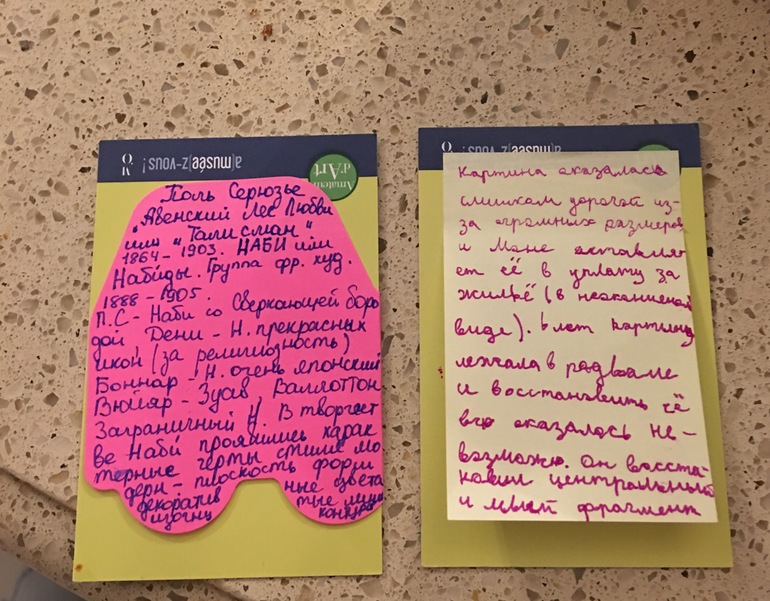 a|musée|z-vous !
M'
O
Amateur
d'Art
Поль Серюзье
"Авенский Лес Любви
или "Талисман"
1864-1903. НАБИ или
Набиды. Группа фр. худ.
1888-1905.
П.С-Наби со Сверкающей боро
дой Дени-Н. прекрасных
икон (за религиозность)
Боннар-Н. очень японский
Вюйяр-Зуав, Валлоттон
Заграничный Н. В творчест
ве Наби проявились харак
терные черты стиля мо
дерн-плоскость форм
декоратив ные цвета
изогну тые линии
контура
a|musée|z-vous !
M'
O
Картина оказалась
слишком дорогой из-
за огромных размеров
и Моне оставля
ет её в уплату за
жильё (в неоконченом
виде). 6 лет картина
лежала в подвале
и восстановить её
всю оказалось не-
возможно. Он восста-
новил центральный
и левый фрагмент